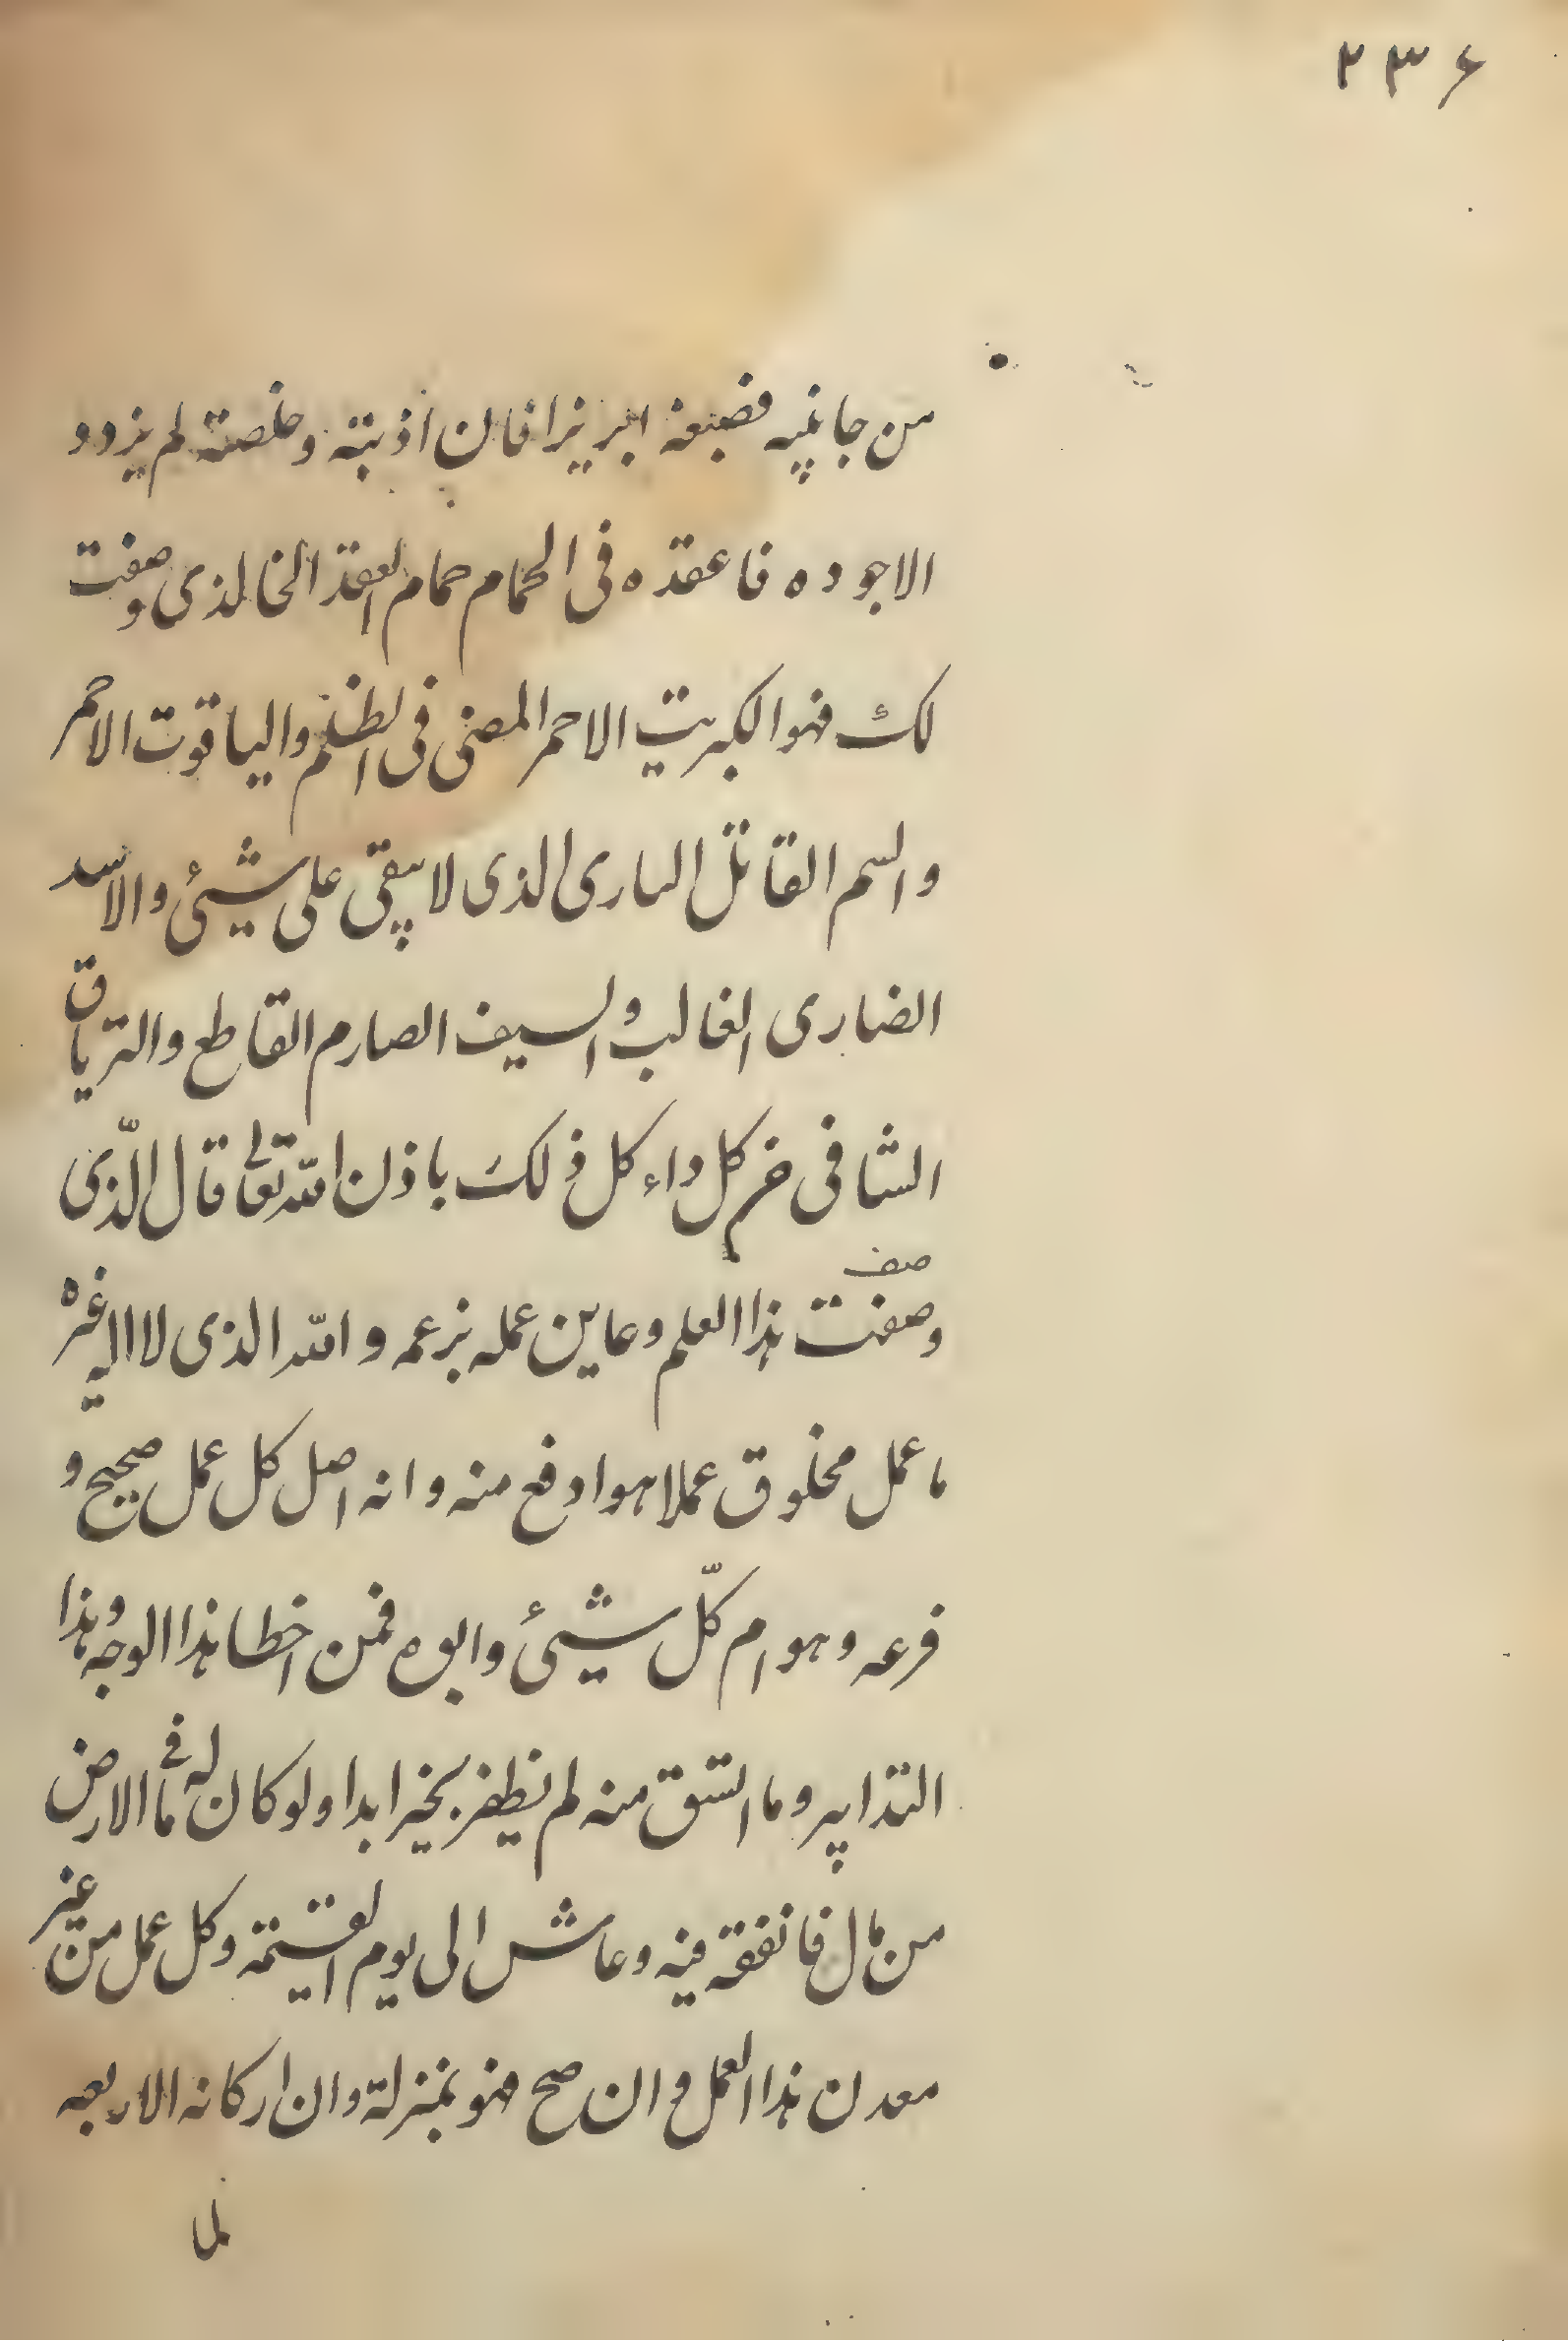 ۲۳۶
من جانبيه فصبغه ابريزا فان اذبته وخلصته لم يزدد
الاجوده فاعقده فى الحمام حمام العقد الخالذى وصفت
لك فهو الكبريت الاحمر المضى فى الظلم والياقوت الاحمر
والسم القاتل السارى الذى لا يبقى على شيئ والاسد
الضارى الغالب والسيف الصارم القاطع والترياق
الشافى من كل داء كل ذلك باذن الله تعالى قال الّذى
صف
وصفت هذا العلم وعاين عمله بزعمه والله الذى لا اله غيره
ما عمل مخلوق عملا هو ارفع منه وانه اصل كل عمل صحيح و
فرعه وهو ام كلّ شيئ وابوه فمن اخطا هذا الوجه وهذا
التدابير وما اشتق منه لم يظفر بخير ابدا ولو كان له ما فى الارض
من مال فانفقه فيه وعاش الى يوم القيمة وكل عمل من غير
معدن هذا العمل وان صح فهو بمنزلة وان اركانه الاربعه
لما